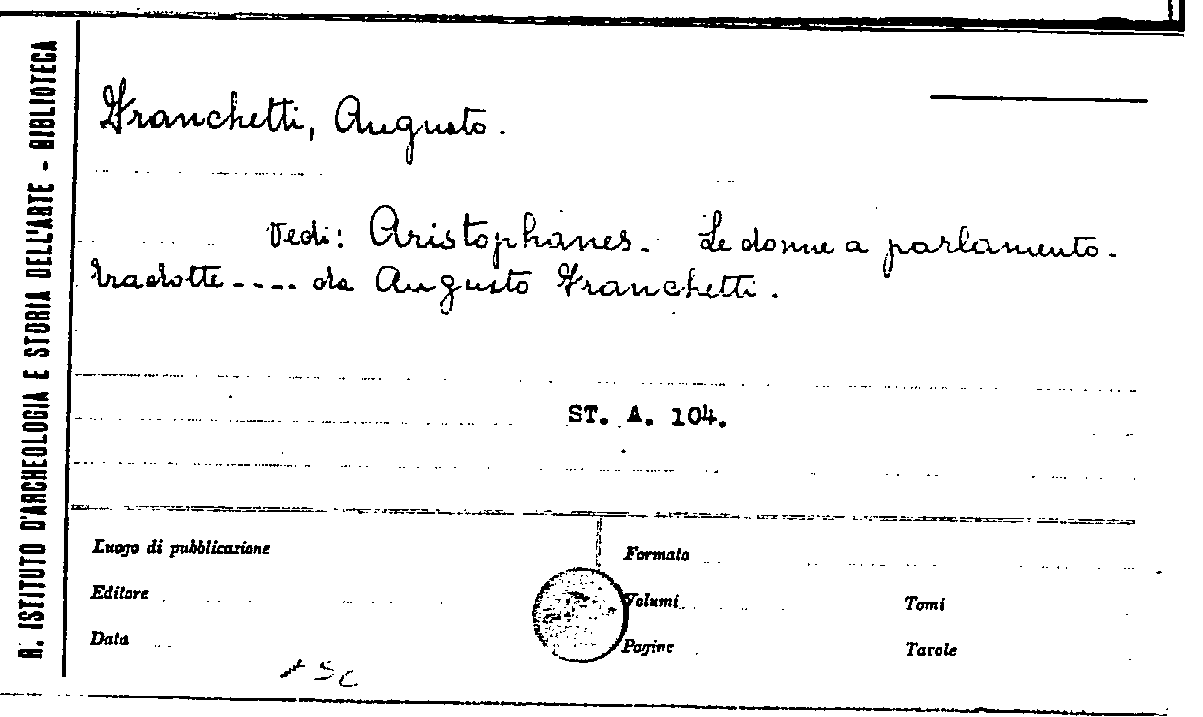 R. ISTITUTO D'ARCHEOLOGIA E STORIA DELL'ARTE - BIBLIOTECA
Franchetti, Augusto.
Vedi: Aristophanes. Le donne a parlamento.
tradotte .... da Augusto Franchetti.
ST. A. 104.
Luogo di pubblicazione
Formato
Editore
Volumi
Tomi
Data
Pagine
Tavole